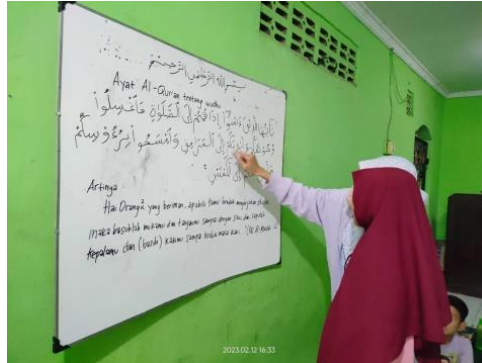 بسم الله الرحمن الرحيم
Ayat Al-Qur'an tentang wudhu
إذا قمتم إلى الصلوة فاغسلوا
إلى المرافق وامسحوا برءوسكم
Artinya
Hai Orang² yang beriman, apabila kamu hendak mengerjakan
maka basuhlah mukamu dan tanganmu sampai dengan siku, dan sapulah
Kepalamu dan (basuh) kakimu sampai kedua mata kaki
2023.02.12 16:33